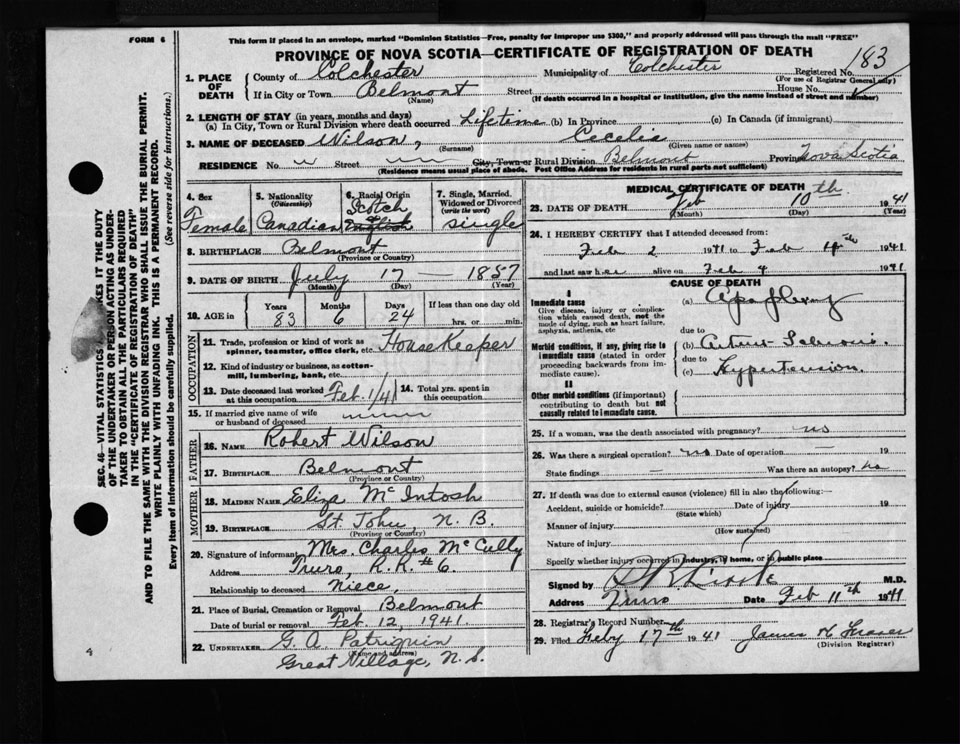 FORM 6
This form if placed in an envelope, marked "Dominion Statistics—Free, penalty for improper use $300," and properly addressed will pass through the mail "FREE"
PROVINCE OF NOVA SCOTIA—CERTIFICATE OF REGISTRATION OF DEATH
1. PLACE OF DEATH County of Colchester Municipality of Colchester Registered No. 183
(For use of Registrar General only)
If in City or Town Belmont Street House No.
(Name) (If death occurred in a hospital or institution, give the name instead of street and number)
2. LENGTH OF STAY (in years, months and days)
(a) In City, Town or Rural Division where death occurred Lifetime (b) In Province (c) In Canada (if immigrant)
3. NAME OF DECEASED Wilson, Cecelia
(Surname) (Given name or names)
RESIDENCE No Street City, Town or Rural Division Belmont Province Nova Scotia
(Residence means usual place of abode. Post Office Address for residents in rural parts not sufficient)
4. Sex Female
5. Nationality (Citizenship) Canadian
6. Racial Origin Scotch English
7. Single, Married, Widowed or Divorced (write the word) single
8. BIRTHPLACE Belmont
(Province or Country)
9. DATE OF BIRTH July 17 — 1857
(Month) (Day) (Year)
10. AGE in Years 83 Months 6 Days 24 If less than one day old
hrs. or min.
OCCUPATION
11. Trade, profession or kind of work as spinner, teamster, office clerk, etc. House Keeper
12. Kind of industry or business, as cotton-mill, lumbering, bank, etc.
13. Date deceased last worked at this occupation Feb. 1/41
14. Total yrs. spent in this occupation
15. If married give name of wife or husband of deceased
FATHER
16. NAME Robert Wilson
17. BIRTHPLACE Belmont
(Province or Country)
MOTHER
18. MAIDEN NAME Eliza McIntosh
19. BIRTHPLACE St. John, N. B.
(Province or Country)
20. Signature of informant Mrs. Charles McCully
Address Truro, R.R. #6.
Relationship to deceased Niece,
21. Place of Burial, Cremation or Removal Belmont
Date of burial or removal Feb. 12, 1941.
22. UNDERTAKER G. A. Patriquin
(Name and address)
Great Village, N.S.
MEDICAL CERTIFICATE OF DEATH
23. DATE OF DEATH Feb 10 th 1941
(Month) (Day) (Year)
24. I HEREBY CERTIFY that I attended deceased from:
Feb 2 1941 to Feb 1941
and last saw her alive on Feb 1941
CAUSE OF DEATH
I
Immediate cause
Give disease, injury or complication which caused death, not the mode of dying, such as heart failure, asphyxia, asthenia, etc
(a)
due to
Morbid conditions, if any, giving rise to immediate cause (stated in order proceeding backwards from immediate cause).
(b)
due to
(c) Hypertension
II
Other morbid conditions (if important) contributing to death but not causally related to immediate cause.
25. If a woman, was the death associated with pregnancy? no
26. Was there a surgical operation? no Date of operation —
State findings — Was there an autopsy? no
27. If death was due to external causes (violence) fill in also the following:—
Accident, suicide or homicide? Date of injury 19
(State which)
Manner of injury
(How sustained)
Nature of injury
Specify whether injury occurred in industry, in home, or in public place
Signed by M.D.
Address Truro Date Feb 11th 1941
28. Registrar's Record Number
29. Filed Feby 17th 1941 James
(Division Registrar)
SEC. 46—VITAL STATISTICS MAKES IT THE DUTY
OF THE UNDERTAKER OR PERSON ACTING AS UNDER-
TAKER TO OBTAIN ALL THE PARTICULARS REQUIRED
IN THE "CERTIFICATE OF REGISTRATION OF DEATH"
AND TO FILE THE SAME WITH THE DIVISION REGISTRAR WHO SHALL ISSUE THE BURIAL PERMIT.
WRITE PLAINLY WITH UNFADING INK. THIS IS A PERMANENT RECORD.
Every item of information should be carefully supplied. (See reverse side for instructions.)
4